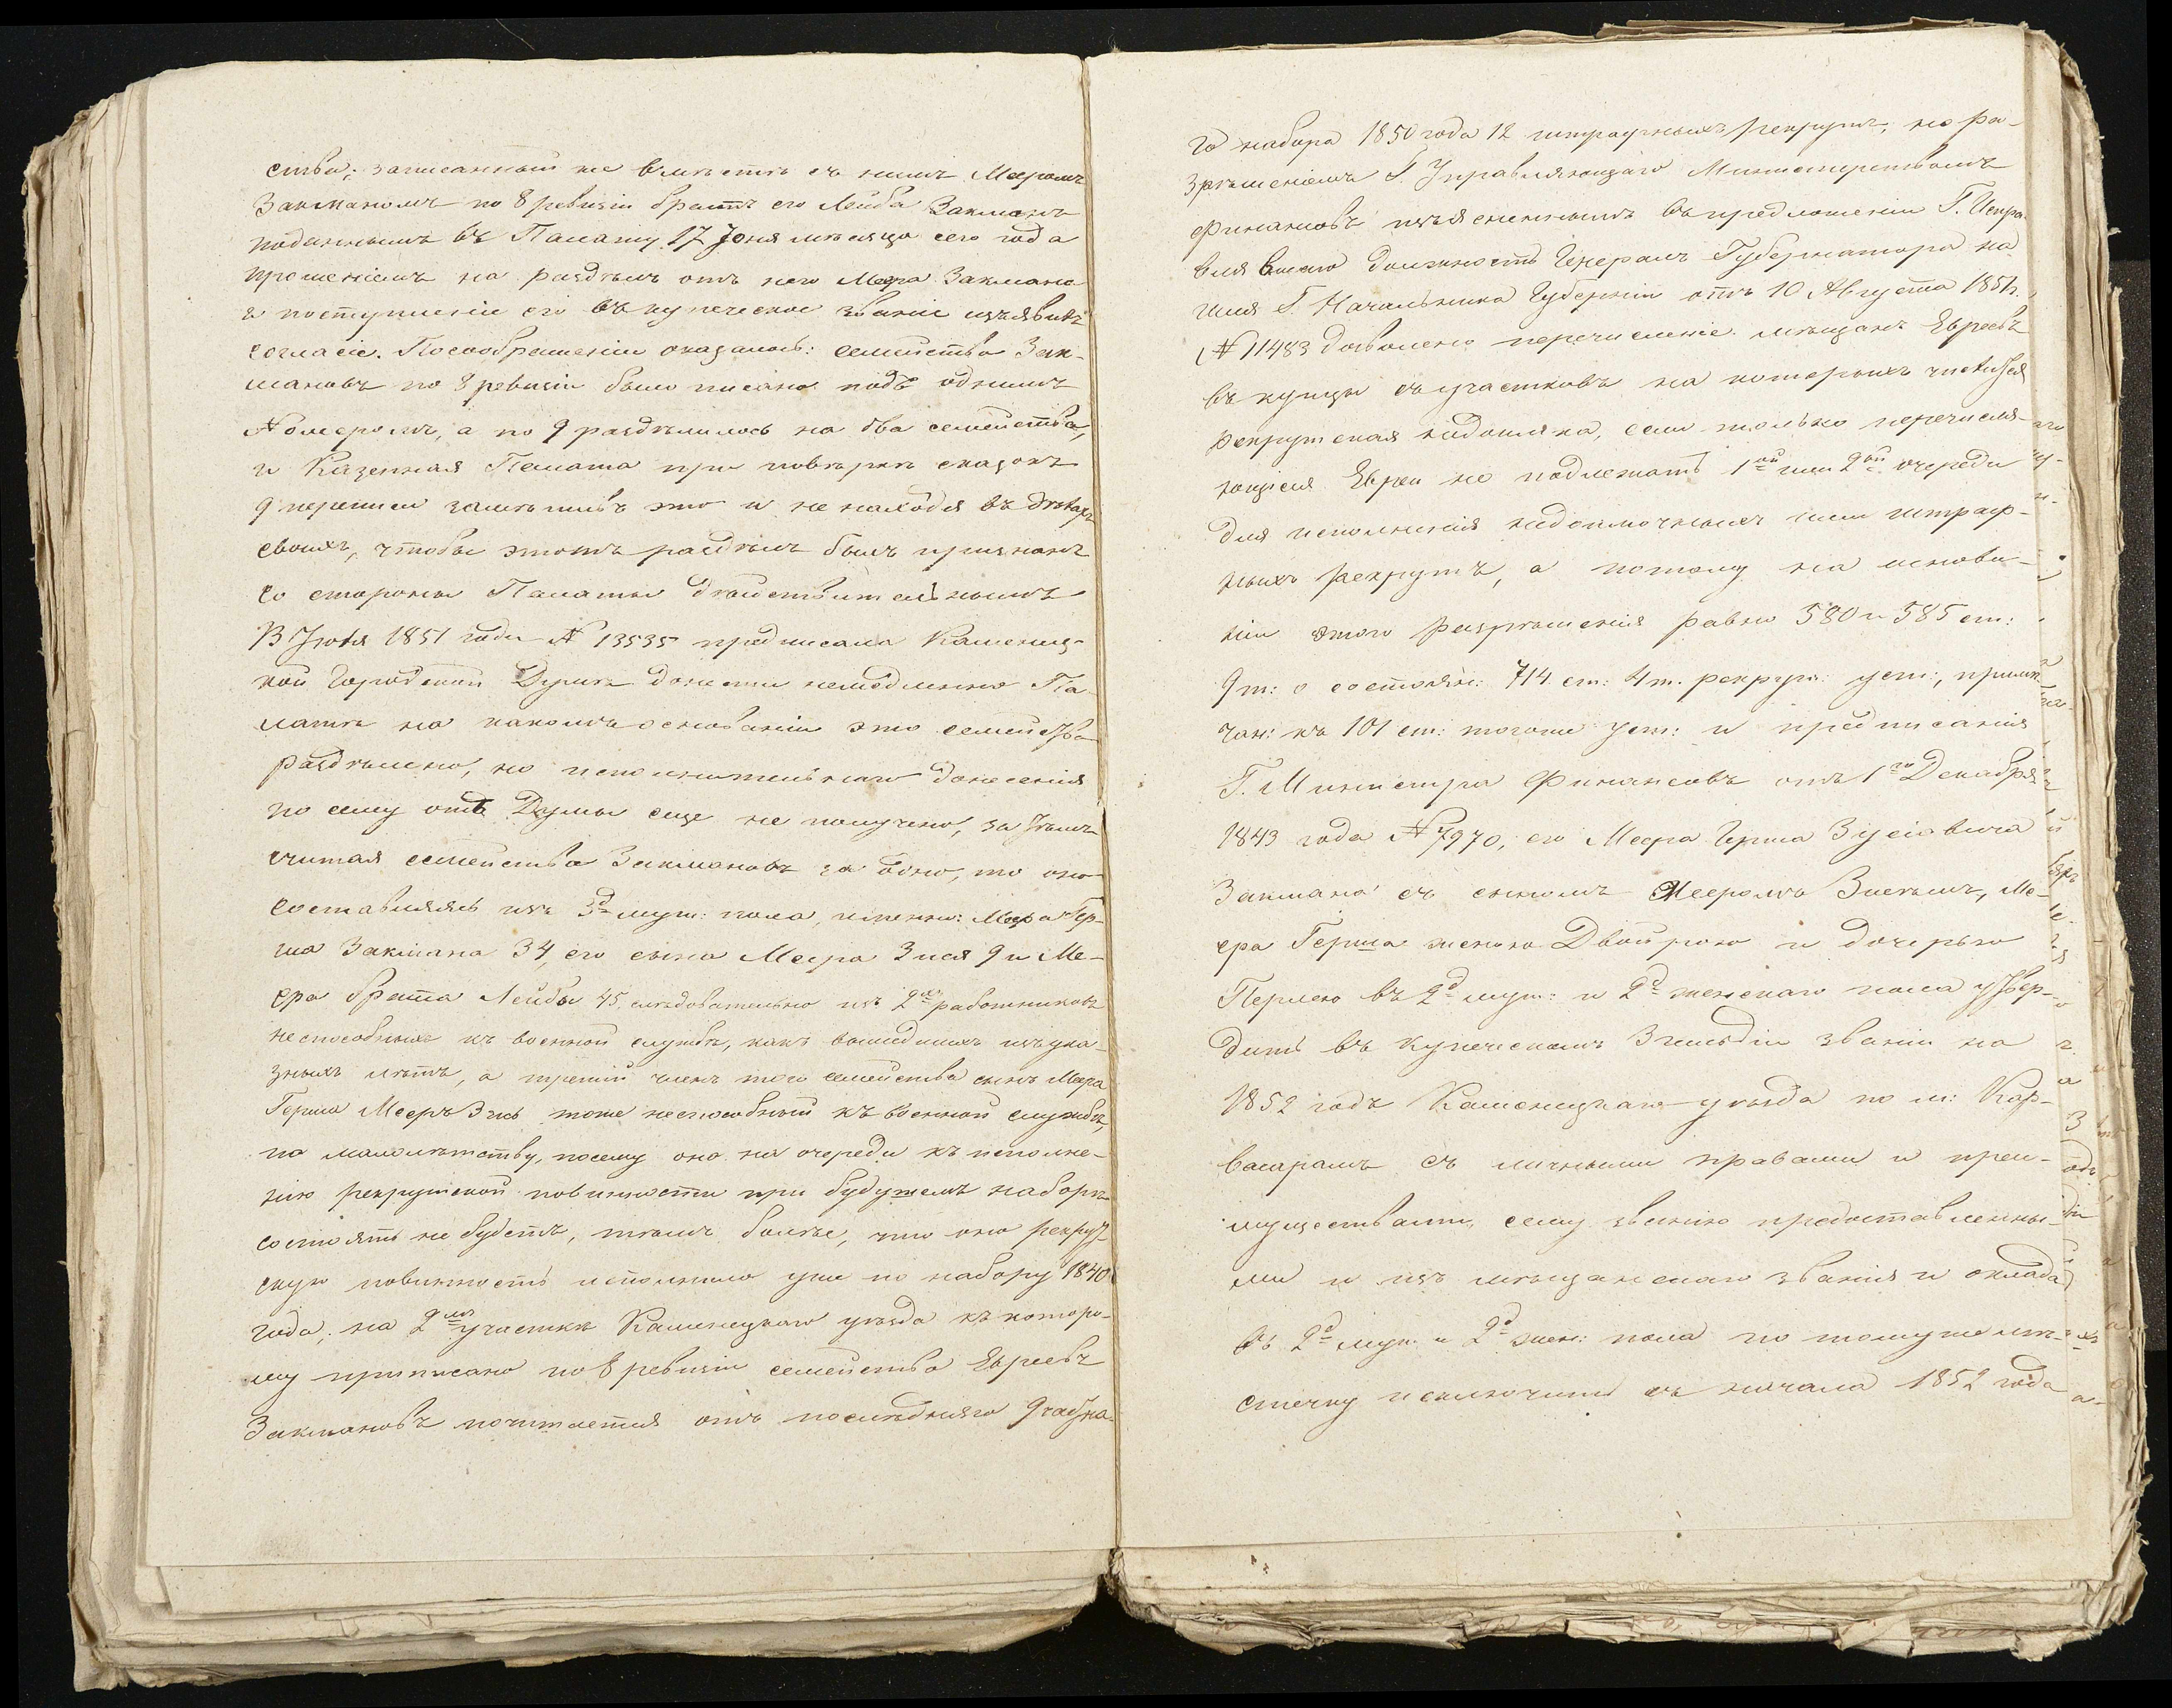 ства; записанный же вместѣ съ нимъ Мееромъ
Закманомъ по 8 ревизіи братъ его Лейба Закманъ
поданнымъ въ Палату 17 Іюня мѣсяца сего года
прошеніемъ на раздѣлъ отъ него Меера Закмана
и поступленіе его въ купеческое званіе изъявилъ
согласіе. По соображеніи оказалось: семейство Зак-
мановъ по 8 ревизіи было писано подъ однимъ
Номеромъ, а по 9 раздѣлилось на два семейства,
и Казенная Палата при повѣркѣ сказокъ
9 переписи замѣтивъ это и не находя въ дѣлахъ
своихъ, чтобы этотъ раздѣлъ былъ признанъ
со стороны Палаты дѣйствительнымъ
13 Іюля 1851 года № 13535 предписала Каменец-
кой Городской Думѣ донести немедленно Па-
латѣ на какомъ основаніи это семейство
раздѣлено, но исполнительнаго донесенія
по сему отъ Думы еще не получено, за тѣмъ
считая семейство Закмановъ за одно, то оно
составляясь изъ 3д муж: пола, именно: Меера Гер-
ша Закмана 34, его сына Меера Зися 9 и Ме-
ера брата Лейбы 45, слѣдовательно изъ 2хъ работниковъ
неспособныхъ къ военной службѣ, какъ вышедшихъ изъ ука-
зныхъ лѣтъ, а третій членъ того семейства сынъ Меера
Герша Мееръ Зись тоже неспособный къ военной службѣ,
по малолѣтству, посему оно на очереди къ исполне-
нію рекрутской повинности при будущемъ наборѣ
состоять не будетъ, тѣмъ болѣе, что оно рекрут-
скую повинность исполнило уже по набору 1840
года; на 2мъ участкѣ Каменецкаго уѣзда къ которо-
му приписано по 8 ревизіи семейство Евреевъ
Закмановъ почитается отъ послѣдняго 9 част на-
го набора 1850 года 12 штрафныхъ рекрутъ, но ра-
зрѣшеніемъ Г. Управляющаго Министерствомъ
Финансовъ изъясненнымъ въ предложеніи Г. Испра-
влявшаго должность Генералъ Губернатора на
имя Г. Начальника Губерніи отъ 10 Августа 1851 г.
№ 11483 дозволено перечисленіе мѣщанъ Евреевъ
въ купцы съ участковъ на которыхъ числится
рекрутская недоимка, если только перечисля-
ющіеся Евреи не подлежатъ 1ой или 2ой очереди
для исполненія недоимочныхъ или штраф-
ныхъ рекрутъ, а потому на основа-
ніи этого разрѣшенія равно 580 и 585 ст:
9 т: о состоян: 714 ст: 4 т. рекрут: уст:, примѣ-
чан: къ 101 ст: тогоже уст: и предписанія
Г. Министра Финансовъ отъ 1го Декабря
1843 года № 7970, его Меера Герша Зусіовича
Закмана съ сыномъ Мееромъ Зисемъ, Ме-
ера Герша женою Двойрою и дочерью
Перлею въ 2д муж: и 2д женскаго пола утвер-
дить въ купеческомъ 3 гильдіи званіи на
1852 годъ Каменецкаго уѣзда по м: Кар-
васарамъ съ личными правами и преи-
муществами, сему званію предоставленны-
ми и изъ мѣщанскаго званія и оклада
въ 2д муж: и 2д жен: пола по томуже мѣ-
стечку исключить съ начала 1852 года